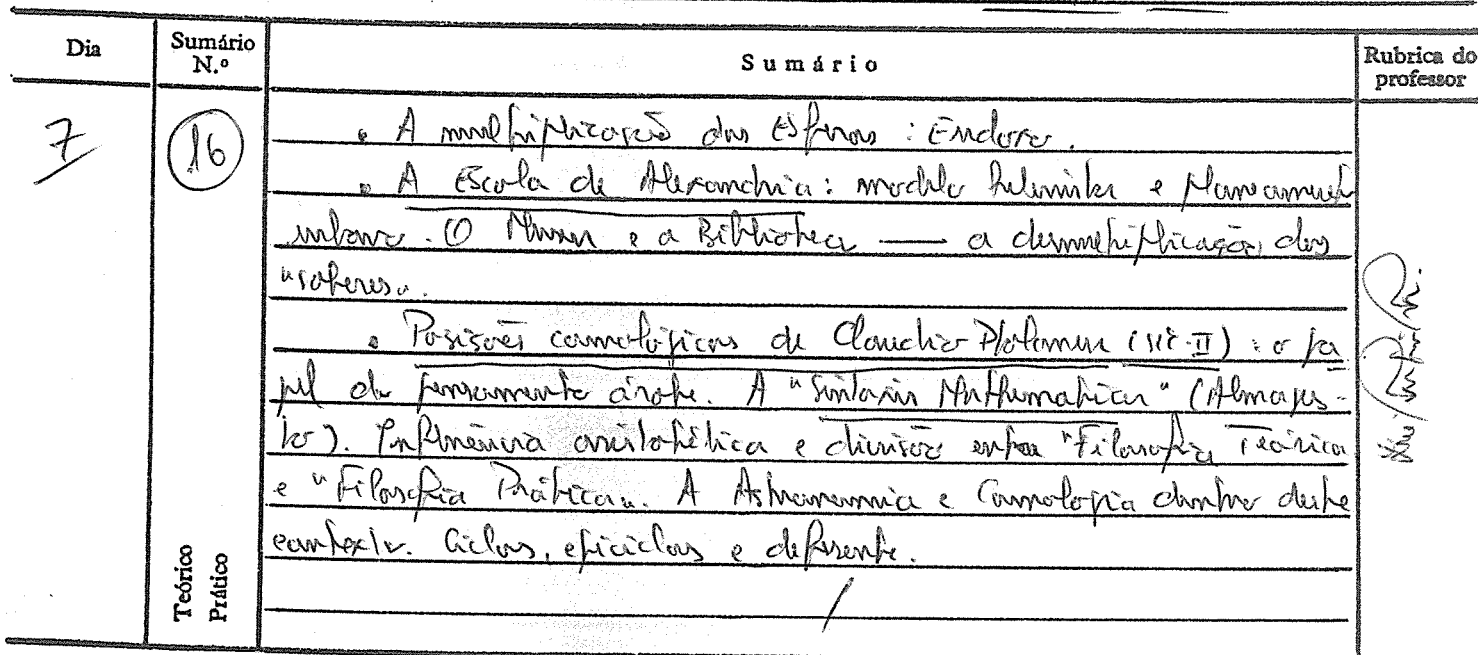 Dia
Sumário N.º
Sumário
Rubrica do professor
7
16
• A multiplicação das Esferas : Eudoxo.
• A Escola de Alexandria: modelo helenista e planeamento
urbano. O Museu e a Biblioteca — a desmultiplicação dos
"saberes".
• Posições cosmológicas de Claudio Ptolomeu (séc. II) : o pa
pel do pensamento árabe. A "Sintaxis Mathematica" (Almages-
to). Influência aristotélica e divisão entre "Filosofia Teórica
e "Filosofia Prática". A Astronomia e Cosmologia dentro deste
contexto. Ciclos, epiciclos e deferente.
Teórico
Prático